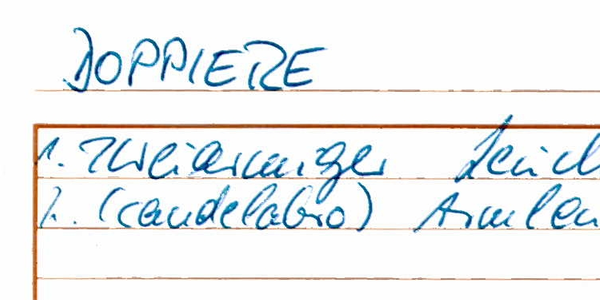 DOPPIERE
1. Zweiarmiger Leuch
2. (candelabro) Armleu